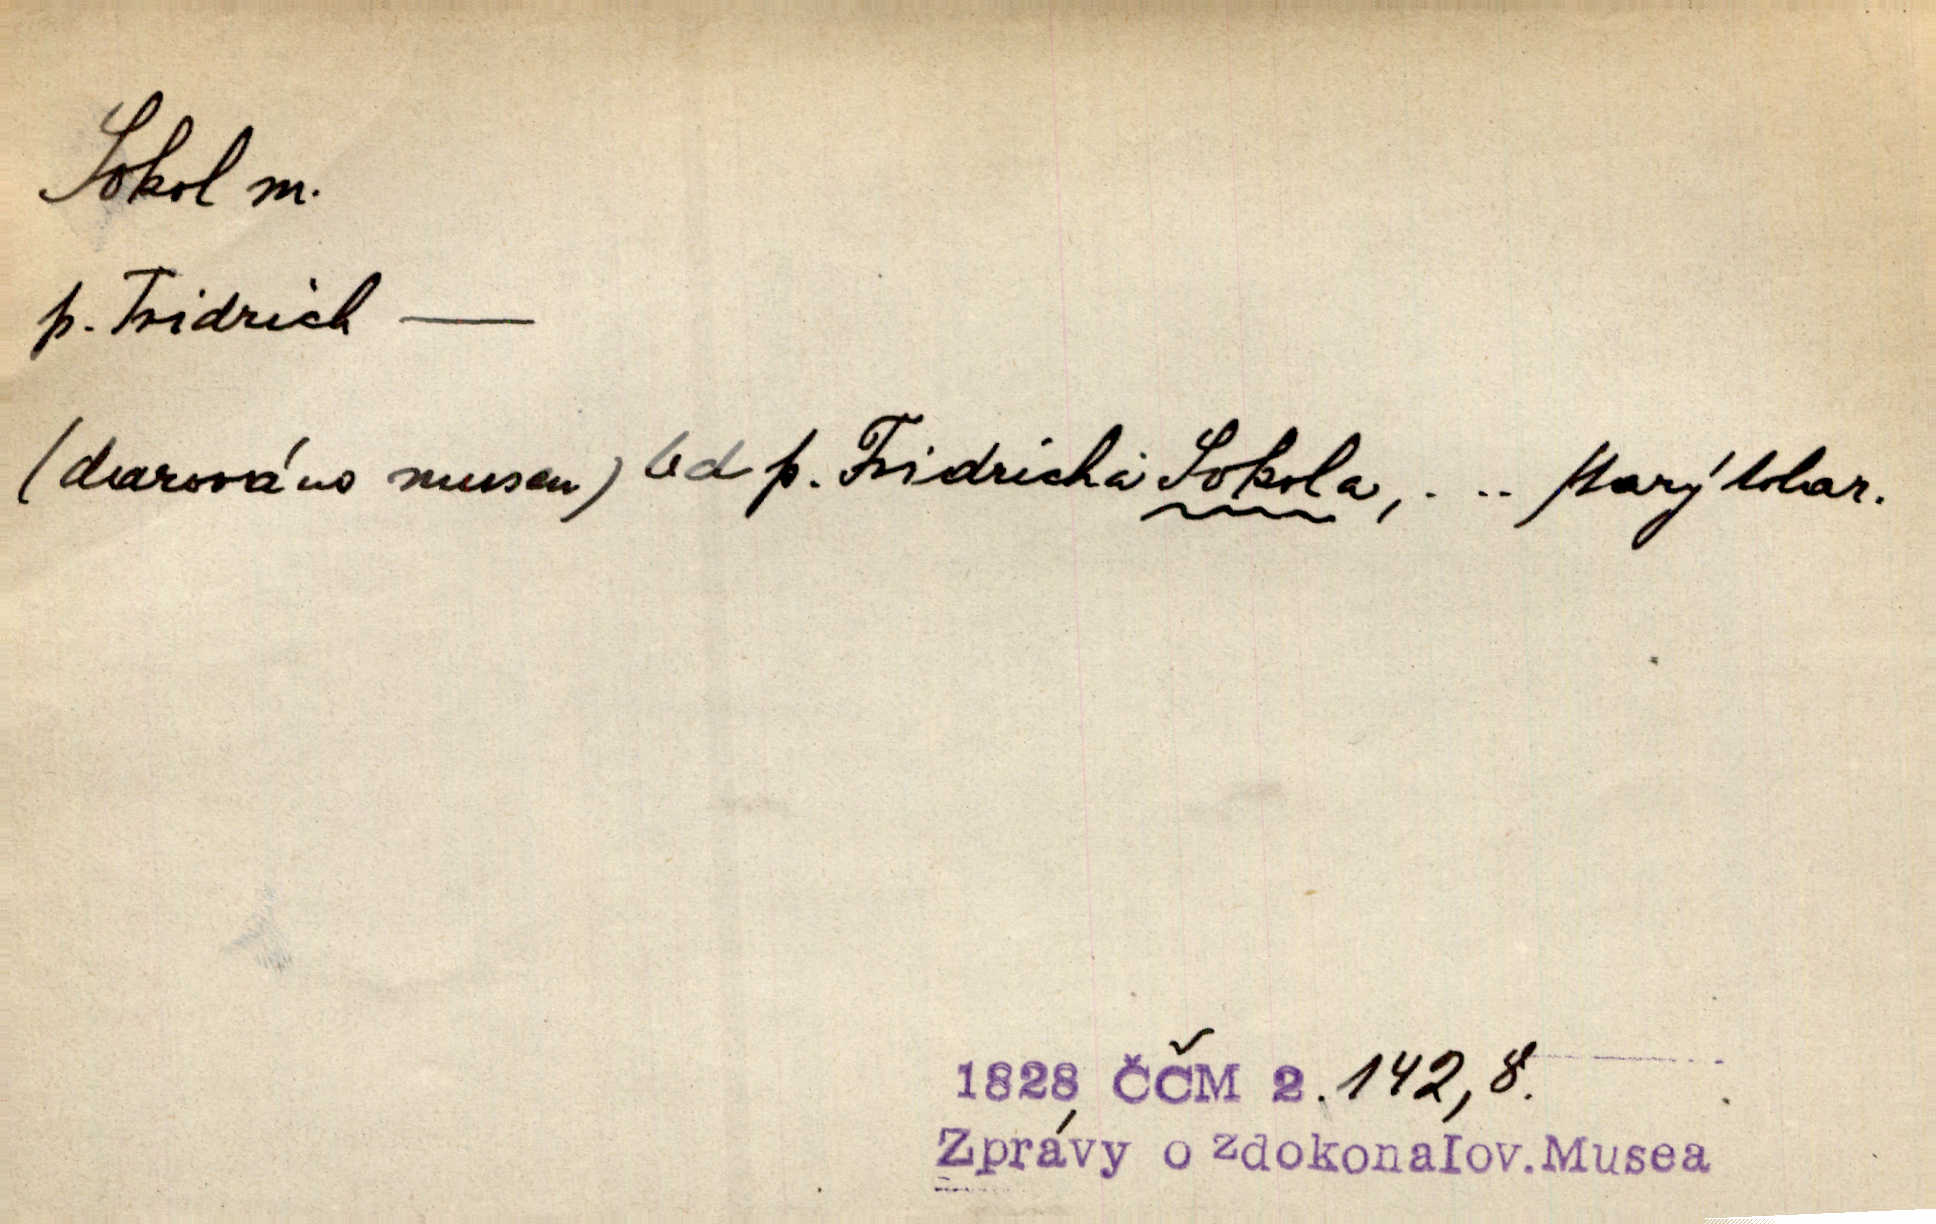 Sokol m.
p. Fridrich —
(darováno museu) Od p. Fridricha Sokola, . .. starý tolar.
1828 ČČM 2. 142, 8.
Zprávy o zdokonalov. Musea